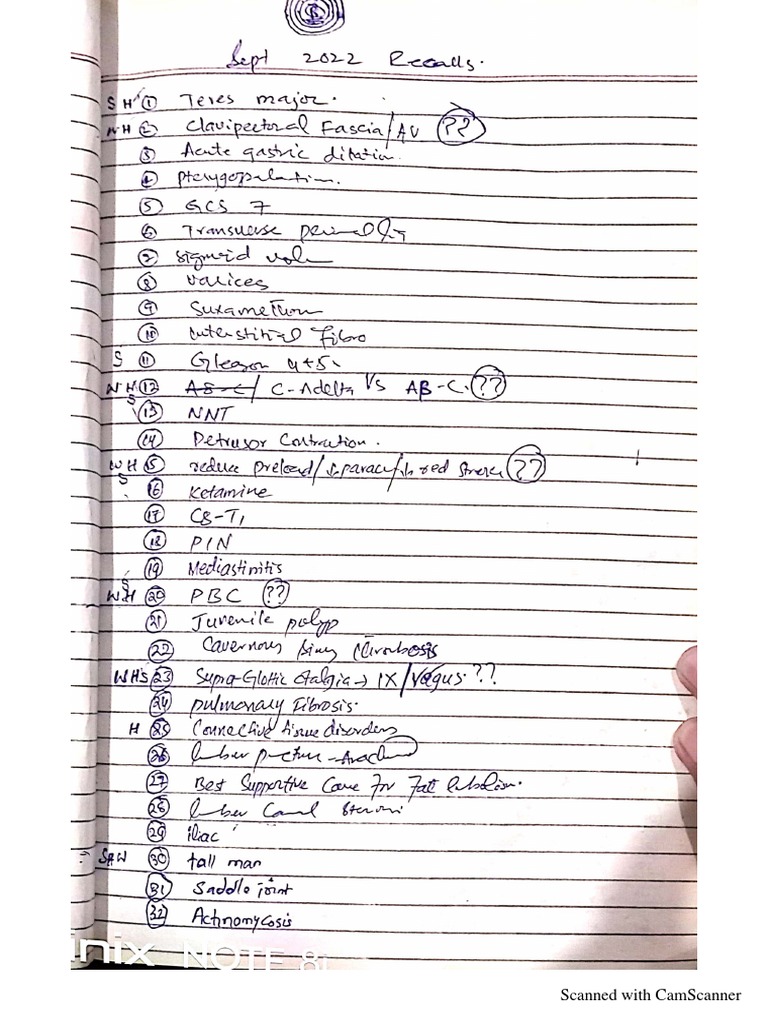 Sept 2022 Recalls.
SH ① Teres major.
WH ② Clavipectoral Fascia/AV ??
③ Acute gastric dilation.
④ pterygopalatin.
⑤ GCS 7
⑥ Transverse
⑦ sigmoid
⑧ varices
⑨ Suxamethon
⑩ interstitial fibro
S ⑪ Gleason 4+5
WH ⑫ C-Adelta VS AB-C. ??
S ⑬ NNT
⑭ Detrusor Contraction.
WH ⑮ reduce preload/ ??
S ⑯ Ketamine
⑰ C8-T1
⑱ PIN
⑲ Mediastinitis
S
WH ⑳ PBC ??
㉑ Juvenile polyp
㉒ Cavernous sinus thrombosis
WHS ㉓ Supra-Glottic otalgia → IX/Vagus. ??
㉔ pulmonary Fibrosis.
H ㉕ Connective tissue disorders
㉖ lumber puncture -
㉗ Best Supportive Care For Fat
㉘ lumber Canal
㉙ iliac
SHW ㉚ tall man
㉛ Saddle joint
㉜ Actinomycosis
inix NOTE 8i
Scanned with CamScanner